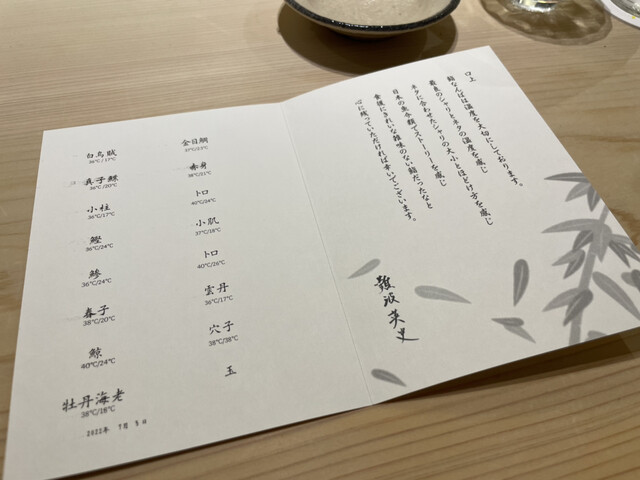 口上
鮨なんばは温度を大切にしております。
最良のシャリとネタの温度を感じ
ネタに合わせたシャリの大小とほどけ方を感じ
日本の魚介類でストーリーを感じ
食後にきれいな雑味のない鮨だったなと
心に残っていただければ幸いでございます。
難波英史
金目鯛
37°C/23°C
赤身
38°C/21°C
トロ
40°C/24°C
小肌
37°C/18°C
トロ
40°C/26°C
雲丹
36°C/17°C
穴子
38°C/38°C
玉
白烏賊
36°C/17°C
真子鰈
36°C/20°C
小柱
36°C/17°C
鰹
36°C/24°C
鯵
36°C/24°C
春子
38°C/20°C
鯨
40°C/24°C
牡丹海老
38°C/18°C